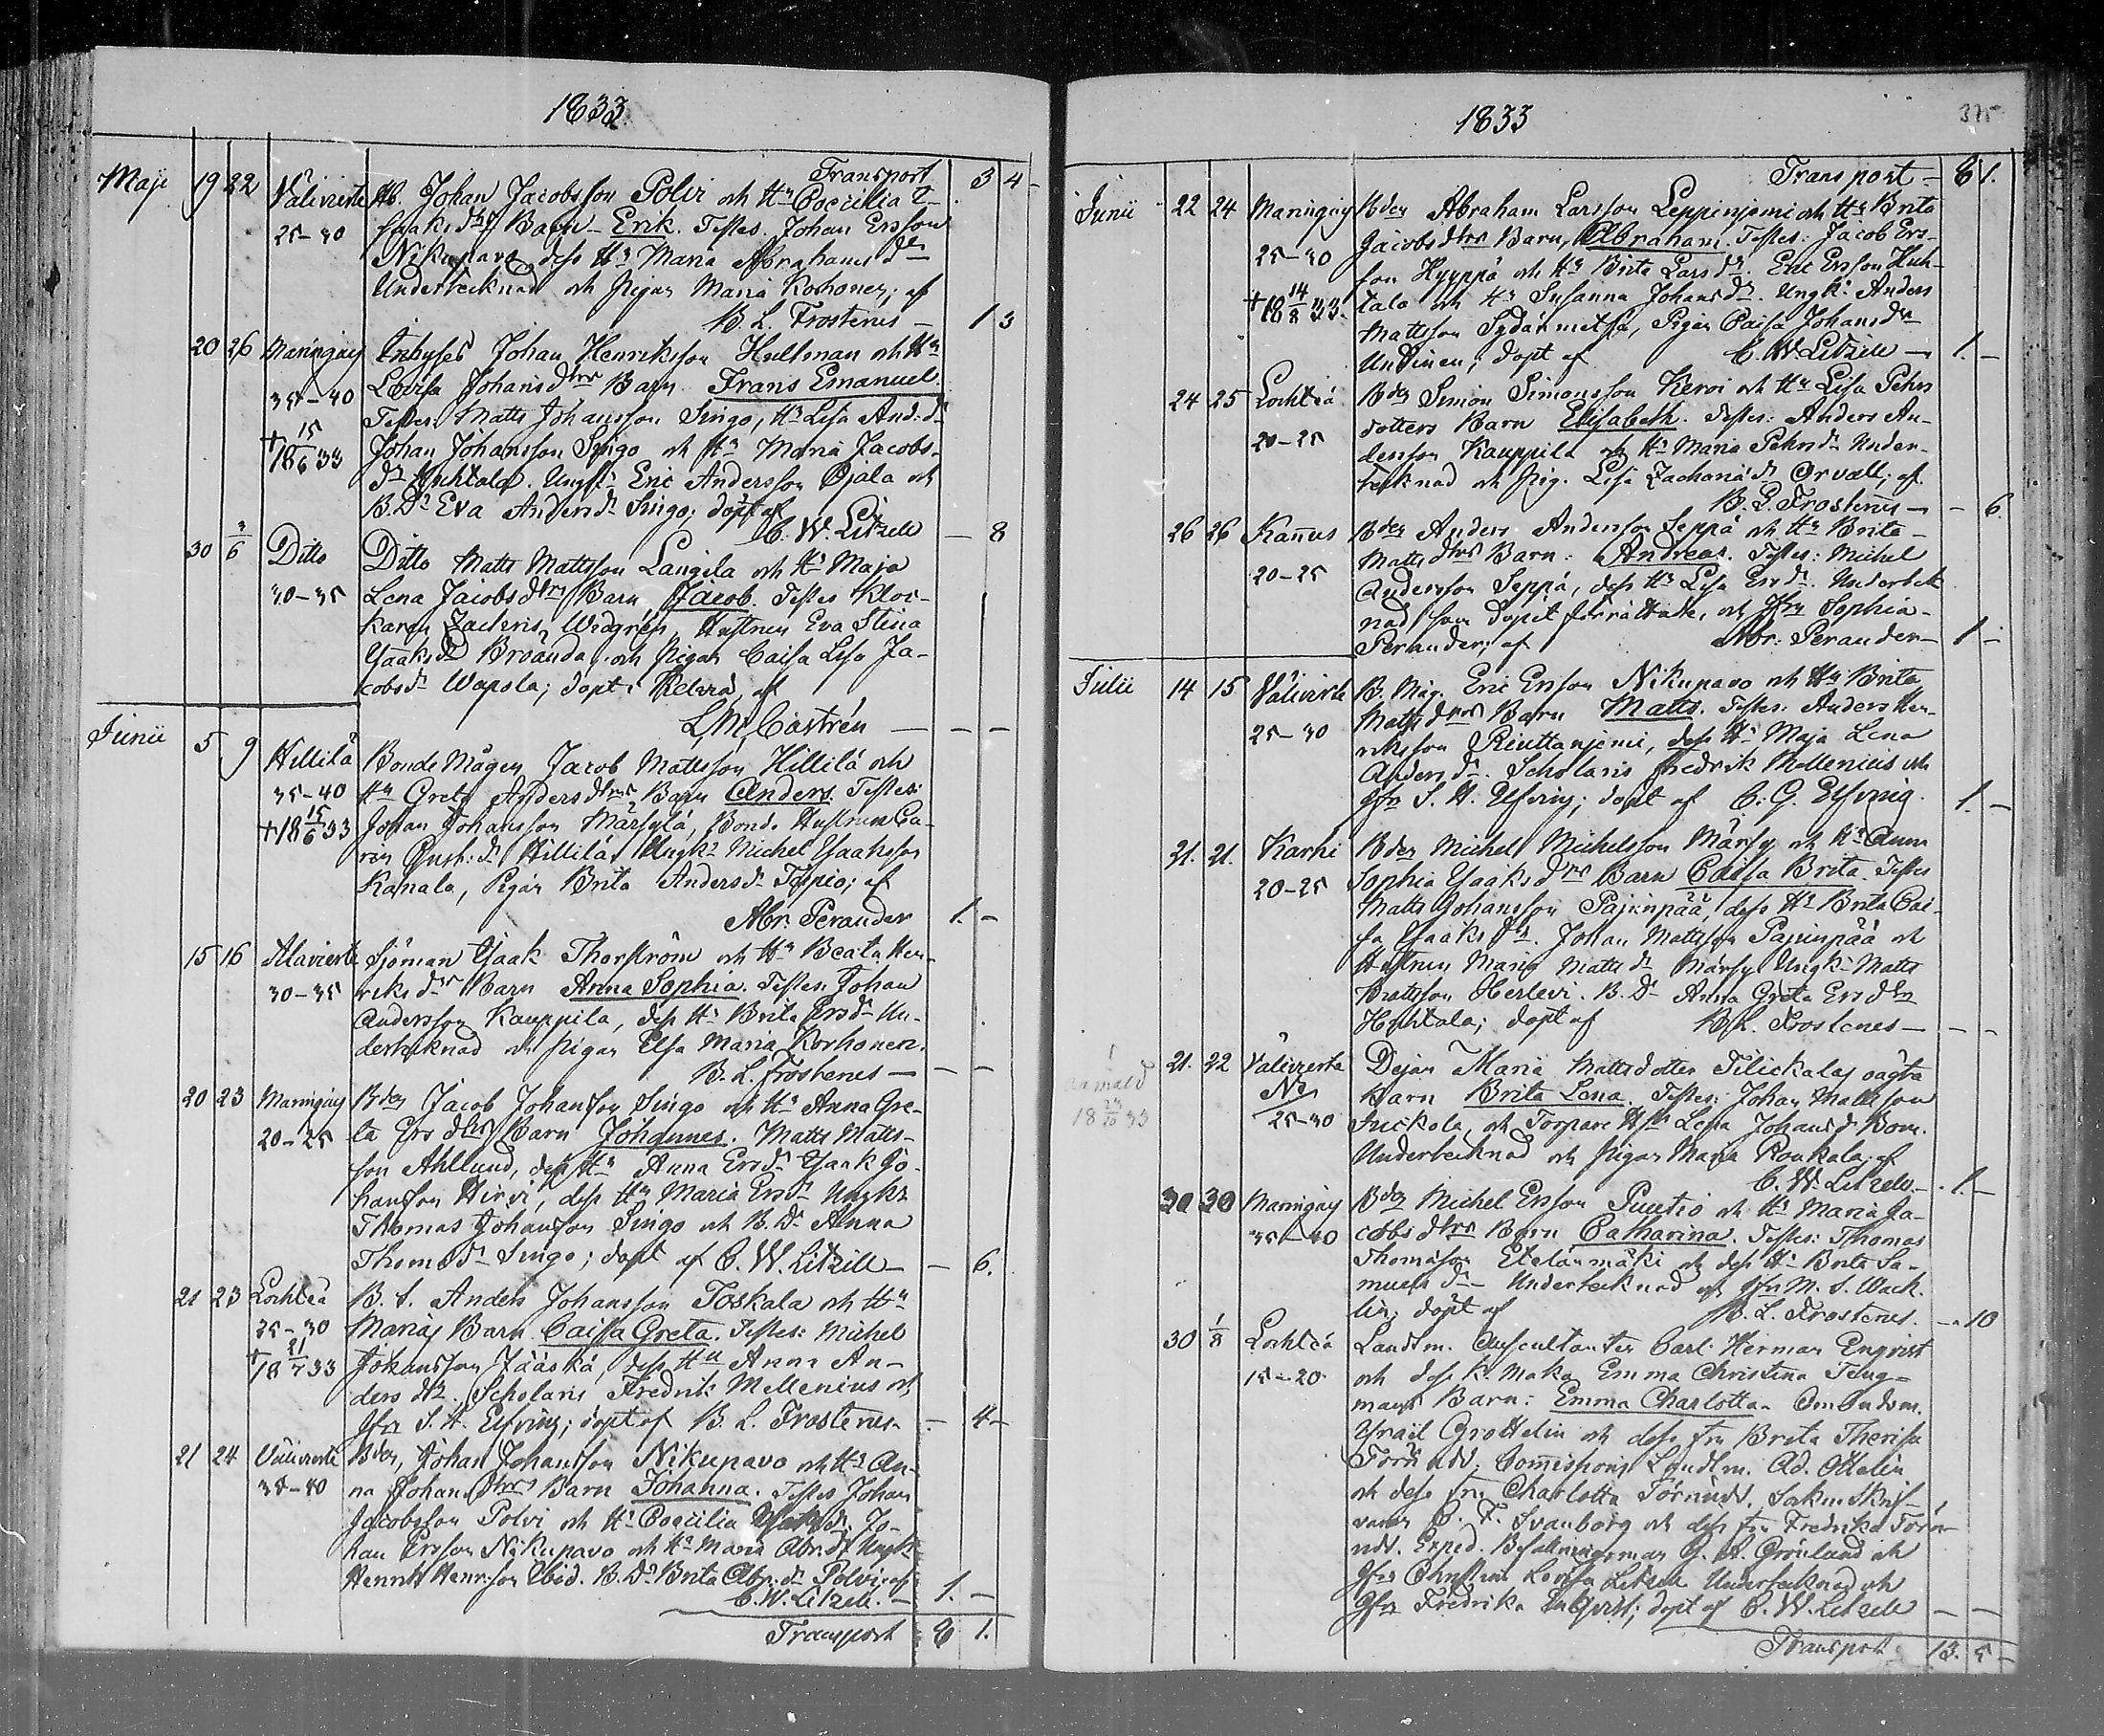 1833
Transport 3 4
Maji 19 22 Välivirrte Ab. Johan Jacobsson Polvi och Hu Coecilia I-
25-30 saaksdtrs Barn Erik. Testes. Johan Ersson
Nikupavo dess Hu Maria Abrahamsdr
Undertecknad och Pigan Maria Korhonen; af
B. L. Frostenus 1 3
20 26 Maringais Inhyses Johan Henriksson Hultman och Hu
35-40 Lovisa Johansdtrs Barn Frans Emanuel.
Testes Matts Johansson Singo, Hu Lisa And:dr
† 18 15/6 33 Johan Johansson Singo och Hu Maria Jacobs-
dr Huhtala. Ungk. Eric Andersson Ojala och
B.Dr Eva Andersdr Singo; döpt af
C. W. Litzell - 8
30 3/6 Ditto Ditto Matts Mattsson Langila och Hu Maja
30-35 Lena Jacobsdtrs Barn Jacob. Testes Kloc-
karen Zachris Wedgren, Hustrun Eva Stina
Isaksdr Broanda, och Pigan Caisa Lisa Ja-
cobsdr Wapola; döpt i Kelviå, af
L. M. Castrén - -
Junii 5 9 Hillilä Bonde Mågen Jacob Mattsson Hillilä och
35-40 Hu Greta Andersdtrs Barn Anders. Testes:
† 18 15/6 33 Johan Johansson Märsylä, Bonde Hustrun Ca-
rin Gust:dr Hillilä. Ungk. Michel Isaksson
Kanala, Pigan Brita Andersdr Tapio; af
Abr. Perander 1. -
15 16 Alavierte Sjöman Isaak Thorström och Hu Beata Hen-
30-35 riksdtrs Barn Anna Sophia. Testes: Johan
Andersson Kauppila, dess Hu Brita Ersdr Un-
dertecknad och Pigan Elsa Maria Korhonen.
B. L. Frostenus - -
20 23 Maringais Bden Jacob Johansson Singo och Hu Anna Gre-
20-25 ta Ersdtrs Barn Johannes. Matts Matts-
son Ahllund, dess Hu Anna Ersdr Isaak Jo-
hansson Hirvi, dess Hu Maria Ersdr Ungk.
Thomas Johansson Singo och B.Dr Anna
Thomsdr Singo; döpt af C. W. Litzell - 6.
21 23 Lochteå B. S. Anders Johansson Toskala och Hu
25-30 Marias Barn Caisa Greta. Testes: Michel
† 18 21/7 33 Johansson Jääskä, dess Hu Anna An-
dersdtr. Scholaris Fredrik Mellenius och
Jfru S. H. Elfving; döpt af B. L. Frostenus - 4 -
21 24 Välivierte Bden, Johan Johansson Nikupavo och Hu An-
35-40 na Johansdtrs Barn Johanna. Testes Johan
Jacobsson Polvi och Hu Coecilia Isaksdr. Jo-
han Ersson Nikupavo och Hu Maria Abr.dr Ungk.
Henrik Henrsson Ibid. B.Dr Brita Abr.dr Polvi; af
C. W. Litzell. 1. -
Transport 8 1.
1833
375
Transport - 8 1.
Junii 22 24 Maringais Bden Abraham Larsson Leppinjemi och Hu Brita
Jacobsdtrs Barn, Abraham. Testes: Jacob Ers-
25-30 son Hyyppä och Hu Brita Larsdr. Eric Ersson Huh-
† 18 14/8 33. tala och Hu Susanna Johansdr. Ungk. Anders
Mattsson Sydänmetsä, Pigan Caisa Johansdr
Undinen; döpt af C. W. Litzell - 1. -
24 25 Lochteå Bden Simon Simonsson Keroi och Hu Lisa Pehrs
20-25 dotters Barn Elisabeth. Testes: Anders An-
dersson Kauppila och Hu Maria Pehrsdr Under-
tecknad och Pig. Lisa Zachariædr Orvall; af
B. L. Frostenus - - 6.
26 26 Kannus Bden Anders Andersson Seppä och Hu Brita
20-25 Mattsdtrs Barn: Andreas. Testes: Michel
Andersson Seppä, dess Hu Lisa Ersdr. Underteck
nad som dopet förrättade, och Jfru Sophia
Perander; af Abr: Perander - 1 -
Julii 14 15 Välivirte B. Måg. Eric Ersson Nikupavo och Hu Brita
25-30 Mattsdtrs Barn Matts. Testes: Anders Hen-
riksson Riuttanjemi, dess Hu Maja Lena
Andersdr. Scholaris Fredrik Mellenius och
Jfru S. H. Elfving; döpt af C. G. Elfving. 1. -
21. 21. Karhi Bden Michel Michelsson Märsy och Hu Anna
20-25 Sophia Isaaksdtrs Barn Caisa Brita. Testes
Matts Johansson Pajunpää, dess Hu Brita Cai-
sa Isaaksdr. Johan Mattsson Pajunpää och
Hustrun Maria Mattsdr Märsy Ungk. Matts
Mattsson Herlevi. B. Dr Anna Greta Ersdtr
Huhtala; döpt af B. L. Frostenus - - -
21. 22 Välivierte Dejan Maria Mattsdotter Tilickalas oägta
No Barn Brita Lena. Testes: Johan Mattsson
18 23/10 33 25-30 och Torpare Hu Lena Johansdr Bom.
Undertecknad och Pigan Maria Roukala; af
C. W. Litzell - 1. -
30 30 Maringais Bden Michel Ersson Puutio och Hu Maria Ja-
35-40 cobsdtrs Barn Catharina. Testes: Thomas
Thomasson Etelänmäki och dess Hu Brita Sa-
muelsdr - Undertecknad och Jfru M. S. Wack-
lin; döpt af B. L. Frostenus. - 10
30 1/8 Lochteå Landtm. Auscultanten Carl Herman Enqvist
15-20 och dess K. Maka Emma Christina Teng-
mans Barn: Emma Charlotta.
Israil Grottelin och dess fru Brita Therisa
Törnudd; Commissions Landtm. Ad. Ottelin
och dess fru Charlotta Törnudd. Sockne Skrif-
varen C. F. Svanborg och dess fru Fredrika Törn-
udd. Exped. Befallningsman G. A. Grönlund och
Jfru Christina Lovisa Litzell Undertecknad och
Jfru Fredrika Enqvist; döpt af C. W. Litzell - -
Transport 13. 5 -